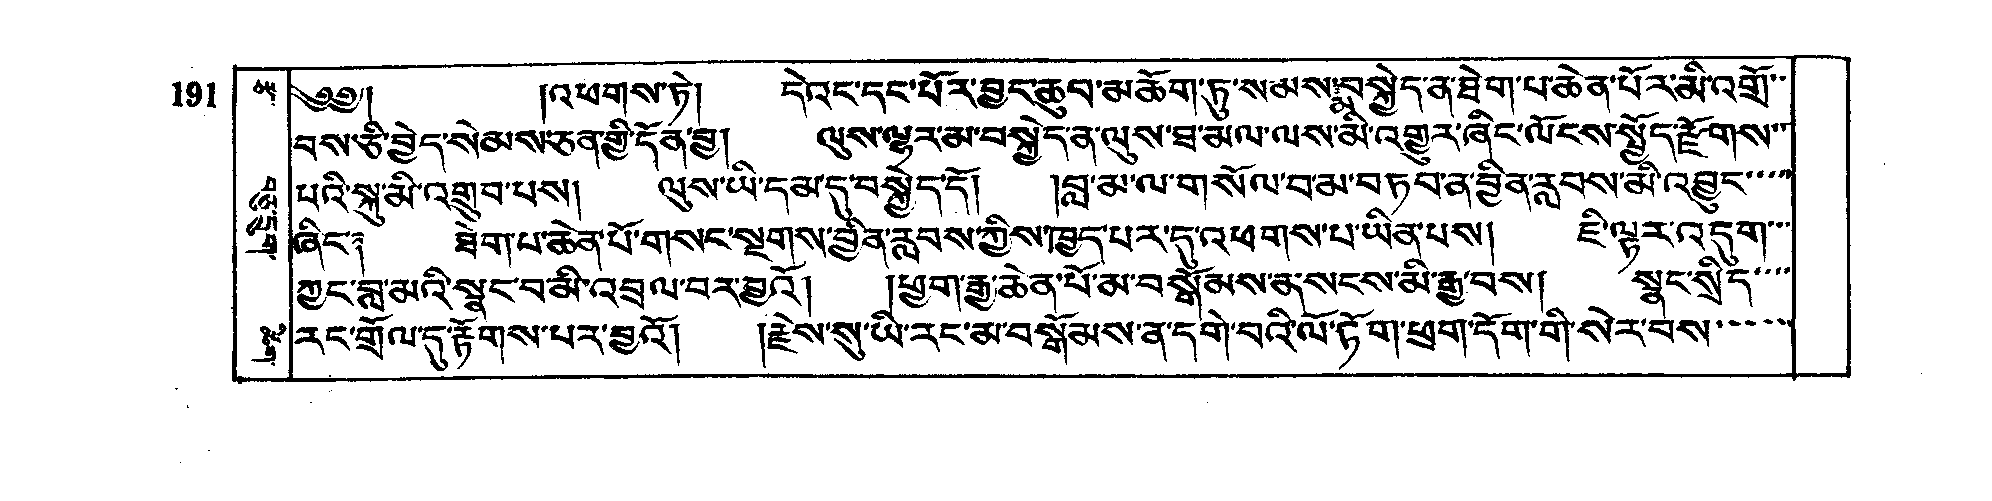 191
༄༅། །འཕགས་ཏེ། དེའང་དང་པོར་བྱང་ཆུབ་མཆོག་ཏུ་སེམས་མ་བསྐྱེད་ན་ཐེག་པ་ཆེན་པོར་མི་འགྲོ་
བས་ཅི་བྱེད་སེམས་ཅན་གྱི་དོན་བྱ། ལུས་ལྷར་མ་བསྐྱེད་ན་ལུས་ཐ་མལ་ལས་མི་འགྱུར་ཞིང་ལོངས་སྤྱོད་རྫོགས་
པའི་སྐུ་མི་འགྲུབ་པས། ལུས་ཡི་དམ་དུ་བསྐྱེད་དོ། །བླ་མ་ལ་གསོལ་བ་མ་བཏབ་ན་བྱིན་རླབས་མི་འབྱུང་
ཞིང་༔ ཐེག་པ་ཆེན་པོ་གསང་སྔགས་བྱིན་རླབས་ཀྱིས་ཁྱད་པར་དུ་འཕགས་པ་ཡིན་པས། ཇི་ལྟར་འདུག་
ཀྱང་བླ་མའི་སྣང་བ་མི་འབྲལ་བར་བྱའོ། །ཕྱག་རྒྱ་ཆེན་པོ་མ་བསྒོམས་ན་སངས་མི་རྒྱ་བས། སྣང་སྲིད་
རང་གྲོལ་དུ་རྟོགས་པར་བྱའོ། །རྗེས་སུ་ཡི་རང་མ་བསྒོམས་ན་དགེ་བའི་ལོ་ཏོག་ཕྲག་དོག་གི་སེར་བས་